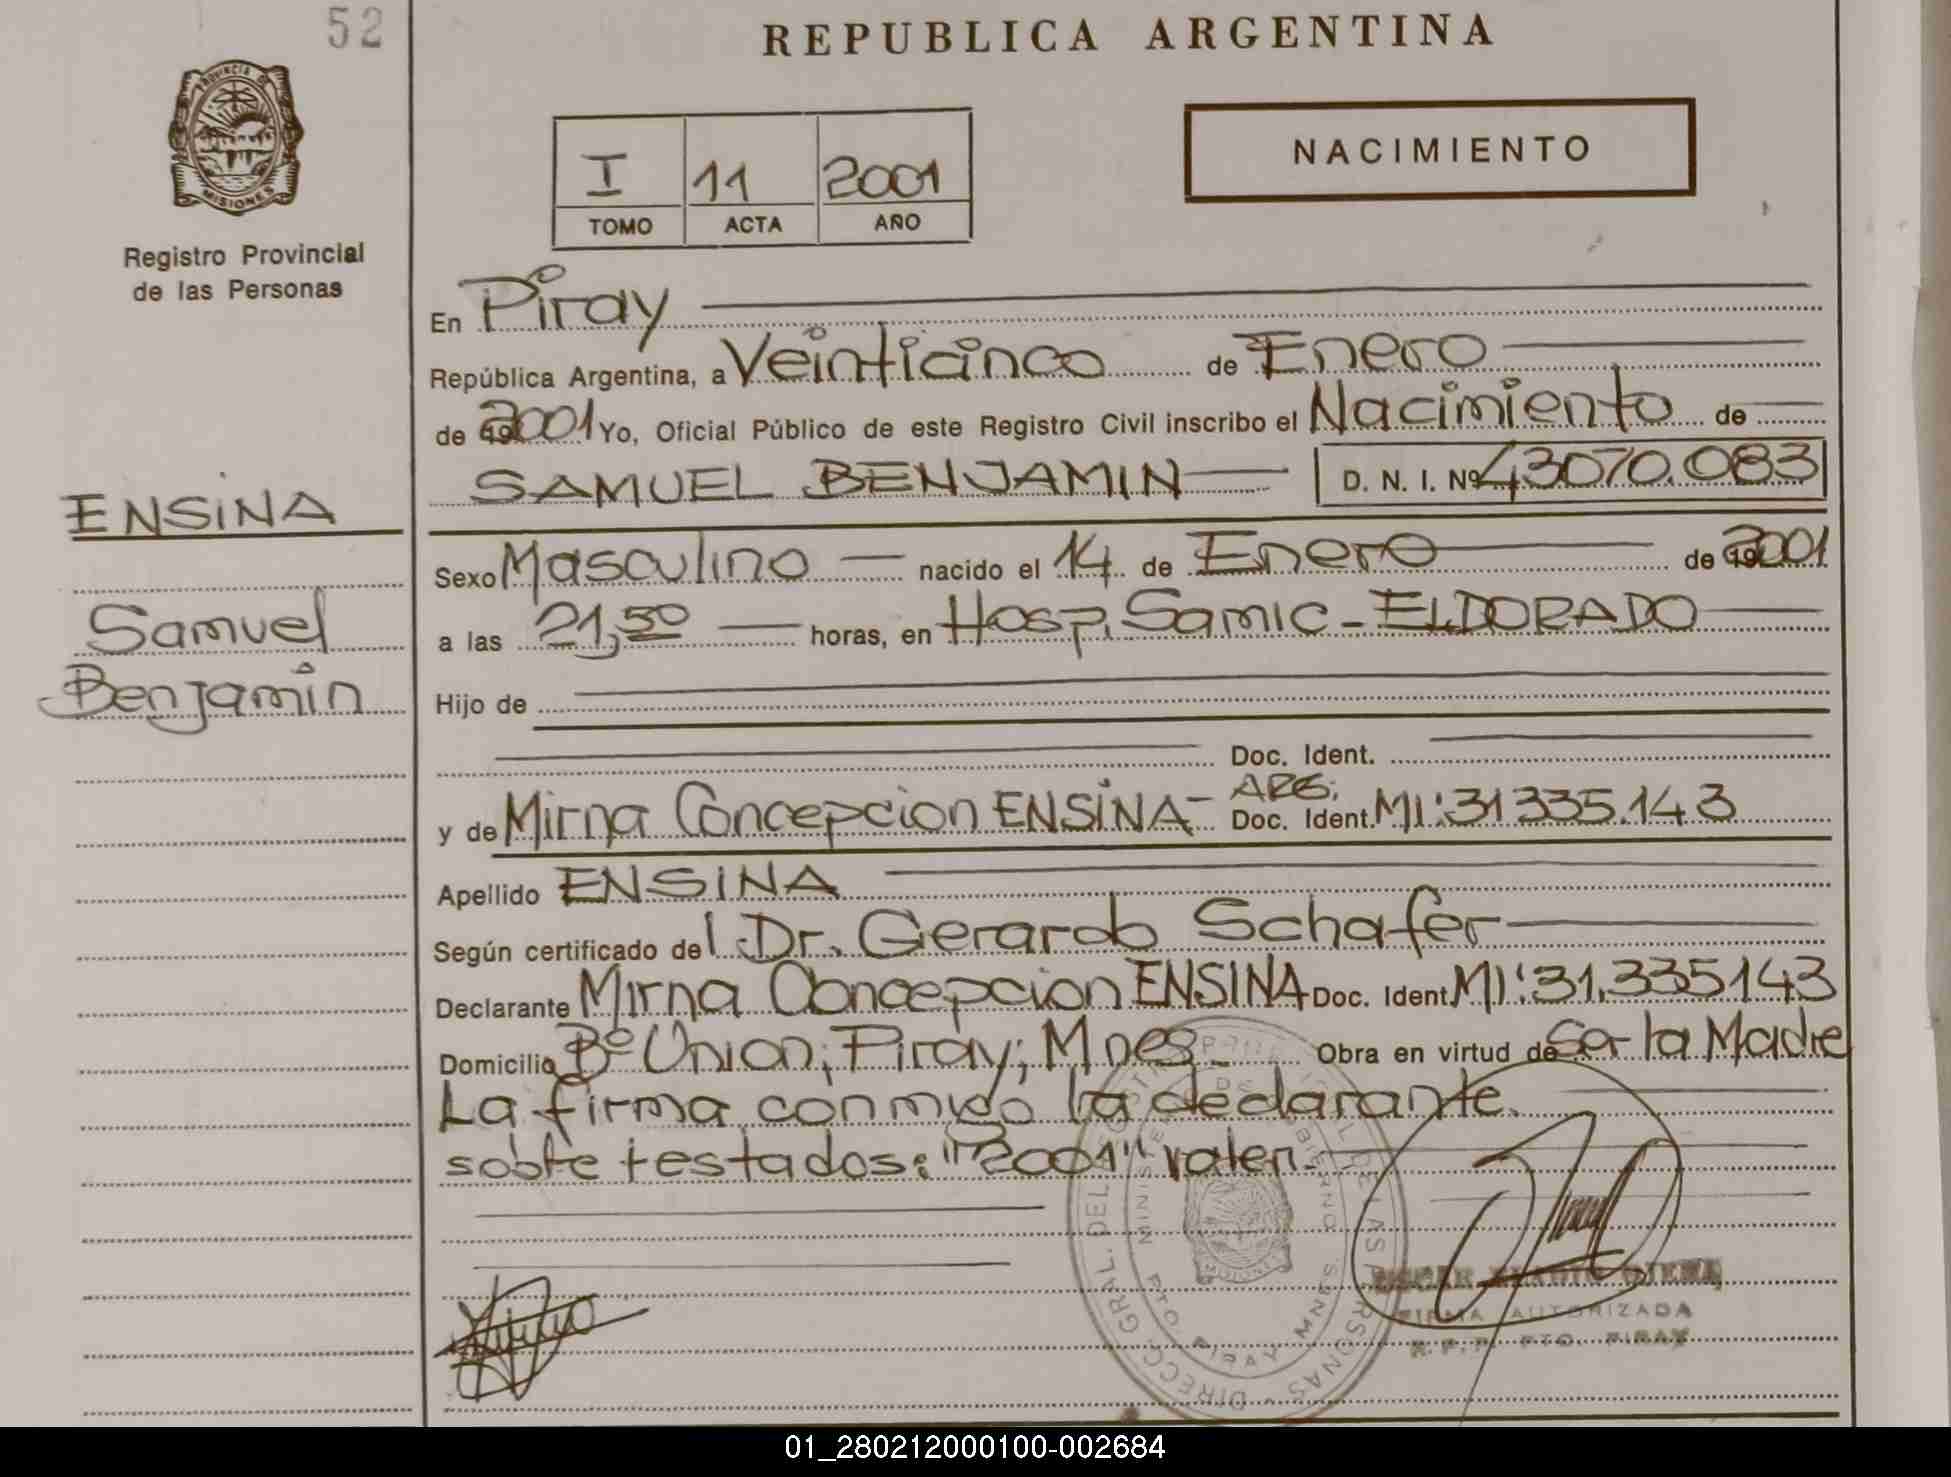 52
REPUBLICA ARGENTINA
PROVINCIA DE MISIONES
Registro Provincial
de las Personas
NACIMIENTO
I 11 2001
TOMO ACTA AÑO
En Piray
República Argentina, a Veinticinco de Enero
de 2001 Yo, Oficial Público de este Registro Civil inscribo el Nacimiento de
SAMUEL BENJAMIN D. N. I. Nº 43070.083
ENSINA
Sexo Masculino nacido el 14 de Enero de 2001
Samuel
Benjamin
a las 21,50 horas, en Hosp. Samic - ELDORADO
Hijo de
Doc. Ident.
y de Mirna Concepcion ENSINA - ARG. Doc. Ident. MI: 31335.143
Apellido ENSINA
Según certificado del Dr. Gerardo Schafer
Declarante Mirna Concepcion ENSINA Doc. Ident. MI: 31.335143
Domicilio Bº Union; Piray; Mnes - Obra en virtud de Ser la Madre
La firma conmigo la declarante.
sobre testados: "2001" valen.
DIRECC. GRAL. DEL DE LAS PERSONAS
MINISTE DE GOBIERNO
PTO PIRAY MNES
FIRMA AUTORIZADA
R. P. P. PTO. PIRAY
01_280212000100-002684